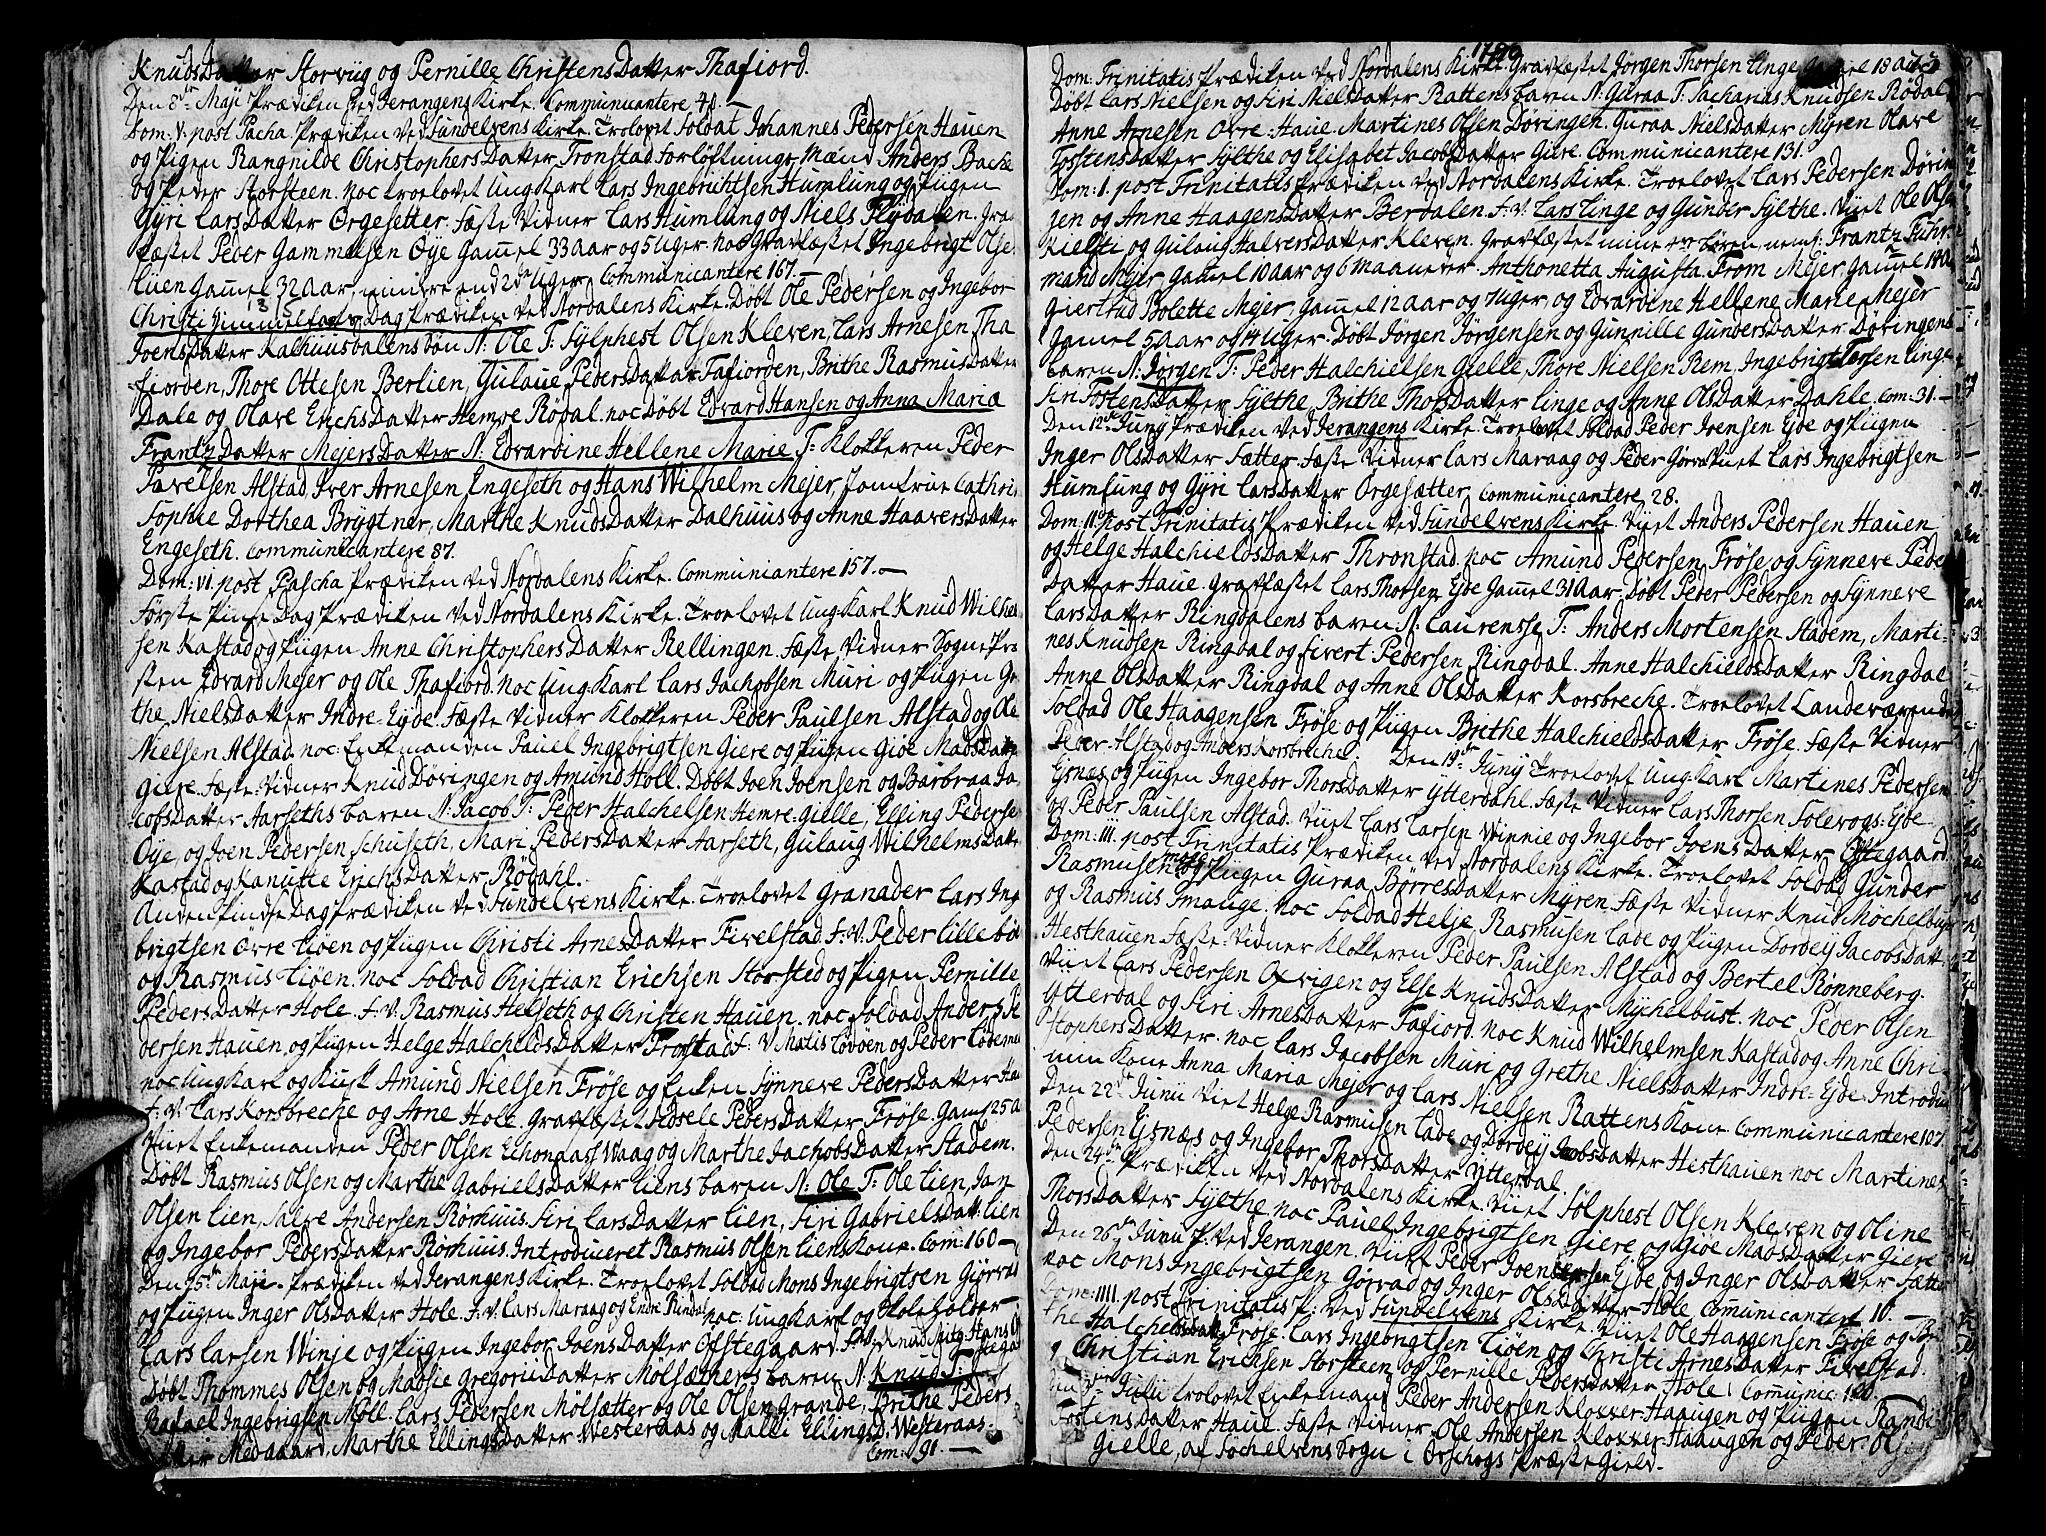 KnudsDatter Storvüg og Pernille ChristensDatter Thafiord.
Den 8de Maÿe Prædiken ved Ierangens Kirke. Communicantere 48.
Dom: V. post Pacha Prædiken ved Sundelvens Kirke. Troelovet Soldat Johannes Pedersen Hauen
og Pigen Rangnilde ChristophersDatter Tronstad forlöftnings Mænd Anders Bache
og Peder Storsteen. noc troelovet ung Karl Lars Ingebrichtsen Humlung og Pügen
Gÿri LarsDatter Orgesetter. Fæste Vidner Lars Humlung og Niels Flÿdalen. Gra-
fæstet Peder Gammelsen Öÿe Gamel 33 Aar og 5 Uger. noc Gravfæstet Ingebrigt Olse
Lüen Gamel 32 Aar, mindre end 2de Uger. Communicantere 167.
Christi Himmelfarts Dag Prædiken ved Nordalens Kirke. Döbt Ole Pedersen og Ingebor
JoensDatter Kalhuusdalens Sön N: Ole T: Sÿlphest Olsen Kleven, Lars Arnesen Tha
fiorden, Thore Ottesen Berlien, Gulaue PedersDatter Tafiorden, Brithe RasmusDatter
Dale og Olave ErichsDatter Hemre Rödal. noc Döbt Edvard Hansen og Anna Maria
FrantzDatter Mejers Datter N: Edvardine Hellene Marie T: Klokkeren Peder
Pavelsen Alstad, Iver Arnesen Engeseth og Hans Wilhelm Mejer, Jomfrue Cathri
Sophie Dorthea Brÿgtner, Marthe KnudsDatter Dalhuus og Anne HaaversDatter
Engeseth. Communicantere 87.
Dom: VI. post Pascha Prædiken ved Nordalens Kirke. Communicantere 157.
Förste Pinse Dag Prædiken ved Nordalens Kirke. Troelovet ung Karl Knud Wilhel
sen Kastad og Pügen Anne ChristophersDatter Rellingen. Fæste Vidner Sogne Præ
sten Edvard Mejer og Ole Thafiord. noc ung Karl Lars Jachobsen Muri og Pügen Gr
the NielsDatter Indre-Eÿde. Fæste Vidner Klokkeren Peder Paulsen Alstad og Ole
Nielsen Alstad. noc Enkemanden Pauel Ingebrigtsen Giere og Pügen Giöe MadsDatter
Giere. Fæste Vidner Knud Döringen og Amund Holl. Döbt Joen Joensen og Barbraa Ja
cobsDatter Aarseths baren N: Jacob T: Peder Halchelsen Hemre-Gielle, Elling Pederse
Öÿe, og Joen Pedersen Schuseth, Mari PedersDatter Aarseth, Gulaug WilhelmsDatt
Kastad og Kanutte ErichsDatter Rödahl.
Anden Pindse Dag Prædiken ved Sundelvens Kirke. Troelovet Granader Lars Ing
brigtsen Övre Liöen og Pügen Christi ArnesDatter Fivelstad. F:V: Peder Lillebö
og Rasmus Liöen. noc Soldad Christian Erichsen Storsted og Pigen Pernille
PedersDatter Hole. F.V. Rasmus Helseth og Christen Hauen. noc Soldad Anders P
dersen Hauen, og Pügen Helge HalcheldsDatter Tronstad F: V Matis Lödoen og Peder Lödem
noc ung Karl og Kusk Amund Nielsen Fröse og Enken Sÿnneve PedersDatter Ha
F.V. Lars Korsbreche og Arne Hole. Gravfæstet Adsele PedersDatter Fröse. Gam 25 A
Viiet Enkemanden Peder Olsen Waag og Marthe JachobsDatter Stadem.
Döbt Rasmus Olsen og Marthe GabrielsDatter Liens baren N: Ole T: Ole Lien, Jan
Olsen Lien, Salve Andersen Rörhuus. Siri LarsDatter Lien, Siri GabrielsDatt: Lien
og Ingebor PedersDatter Rörhuus. Introduceret Rasmus Olsen Liens Kone. Com: 160
Den 25de Maÿe Prædiken ved Ierangens Kirke. Troelovet Soldad Mons Ingebrigtsen Gÿrva
og Pügen Inger OlsDatter Hole. F.V. Lars Maraag og Endre Rindal noc: ung Karl og Skoleholder
Lars Larsen Winje og Pügen Ingebor JoensDatter Ofstegaard. F.V. Knud
Döbt Thommes Olsen og Madsie GregoriiDatter Mölsæthers baren N: Knud T:
Rafael Ingebrigtsen Möll. Lars Pedersen Mölsætter og Ole Olsen Grande, Brithe Peders
Medgaard, Marthe EllingsDatter Westeraas og Malli EllingsD: Westeraas.
Com: 91.
1796
Dom: Trinitatis Prædiken ved Nordalens Kirke. Gravfæstet Jörgen Thorsen Linge Gamel 18 Aar
Döbt Lars Nielsen og Siri NielsDatter Rattens baren N: Guraa T. Sacharias Knudsen Rödal
Anne Arnesen Övre-Haue. Martines Olsen Döringen. Guraa NielsDatter Mÿren Olave
TostensDatter Sÿlthe og Elisabet JacobsDatter Giere. Communicantere 131.
Dom: 1. post Trinitatis Prædiken ved Nordalens Kirke. Troelovet Lars Pedersen Dörin
gen og Anne HaagensDatter Berdalen F.V. Lars Linge og Gunder Sÿlthe. Viiet Ole Olse
Kielste og Gulaug HalversDatter Kleven. Gravfæstet mine 4re Börn nemf: Frantz Fuhr
mand Mejer Gamel 10 Aar og 6 Maaneder. Anthonetta Augusta From Mejer Gamel 14 A
Giertrud Bolette Mejer, Gamel 12 Aar og 7 Uger og Edvardine Hellene Marie Mejer
Gamel 5 Aar og 14 Uger. Döbt Jörgen Jörgensen og Gunnille GundersDatter Döringens
baren N: Jörgen T: Peder Halchielsen Gielle, Thore Nielsen Rem, Ingebrigt Torsen Linge
Siri TostensDatter Sÿlthe Brithe ThorsDatter Linge og Anne OlsDatter Dahle. Com: 31.
Den 12te Junÿ Prædiken ved Ierangens Kirke. Troelovet Soldad Peder Joensen Eÿde og Pügen
Inger OlsDatter Sætter. Fæste Vidner Lars Maraag og Peder Gÿrva. Viiet Lars Ingebrigtsen
Humlung og Gÿri LarsDatter Orgesætter. Communicantere 28.
Dom: II. post Trinitatis Prædiken ved Sundelvens Kirke. Viiet Anders Pedersen Hauen
og Helge HalchieldsDatter Thronstad. noc Amund Pedersen Fröse og Sÿnneve Peder
Datter Haue. Gravfæstet Lars Thorsen Eÿde Gamel 31 Aar. Döbt Peder Pedersen og Sÿnneve
LarsDatter Ringdalens baren N. Laurensse T: Anders Mortensen Stadem, Marti-
nes Knudsen Ringdal og Sivert Pedersen Ringdal. Anne HalchieldsDatter Ringdal
Anne OlsDatter Ringdal og Anne OlsDatter Korsbreche. Troelovet Landeværende
Soldad Ole Haagensen Fröse og Pügen Brithe HalchieldsDatter Fröse. Fæste Vidner
Peder Alstad og Anders Korsbreche. Den 19de Junÿ Troelovet ung Karl Martines Pedersen
Eÿsnes og Pügen Ingebor ThorsDatter Ytterdahl. Fæste Vidner Lars Thorsen Solevogs-Eÿde
og Peder Paulsen Alstad. Viiet Lars Larsen Winnie og Ingebor JoensDatter Ofstegaard.
Dom: III. post Trinitatis Prædiken ved Nordalens Kirke. Troelovet Soldad Gunder
Rasmusen og Pügen Guraa BörresDatter Mÿren. Fæste Vidner Knud Möchelbust
og Rasmus Smauge. noc Soldad Helje Rasmusen Lade og Pügen Dordeÿ JacobsDatt
Hesthauen Fæste Vidner Klokkeren Peder Paulsen Alstad og Bertel Rönneberg.
Viiet Lars Pedersen Ofvigen og Else KnudsDatter Mÿchelbust. noc Peder Olsen
Ytterdal og Siri ArnesDatter Tafiord. noc Knud Wilhelmsen Kastad og Anne Chri-
stophersDatter. noc Lars Jacobsen Muri og Grethe NielsDatter Indre-Eÿde. Introdu
min Kone Anna Maria Mejer og Lars Nielsen Rattens Kone. Communicantere 107.
Den 22de Junii Viet Helge Rasmusen Lade og Dordeÿ JacobsDatter Hesthauen noc Martines
Pedersen Eÿsnæs og Ingebor ThorsDatter Ytterdal.
Den 24de Prædiken ved Nordalens Kirke. Viiet Sölphest Olsen Kleven og Oline
ThorsDatter Sÿlthe noc Pauel Ingebrigtsen Giere og Giöe MadsDatter Giere
Den 26de Junii P: ved Ierangen. Viiet Peder Joensen Eÿde og Inger OlsDatter Sætter
noc Mons Ingebrigtsen Görvad og Inger OlsDatter Hole. Comunicantere 10.
Dom: IIII. post Trinitatis P: ved Sundelvens Kirke. Viiet Ole Haagensen Fröse og Bri
the HalchieldsDatt Fröse. Lars Ingebrigtsen Liöen og Christi ArnesDatter Fivelstad.
Christian Erichsen Storsteen og Pernille PedersDatter Hole. Comunic: 180.
Julii trolovet Enkemand Peder Andersen Klokker-Haaugen og Pügen Randi
TostensDatter Haue. Fæste Vidner Ole Andersen Klokker-Haaugen og Peder Ols
Gielle, af Sochelvens Sogn i Örschogs PræsteGield.